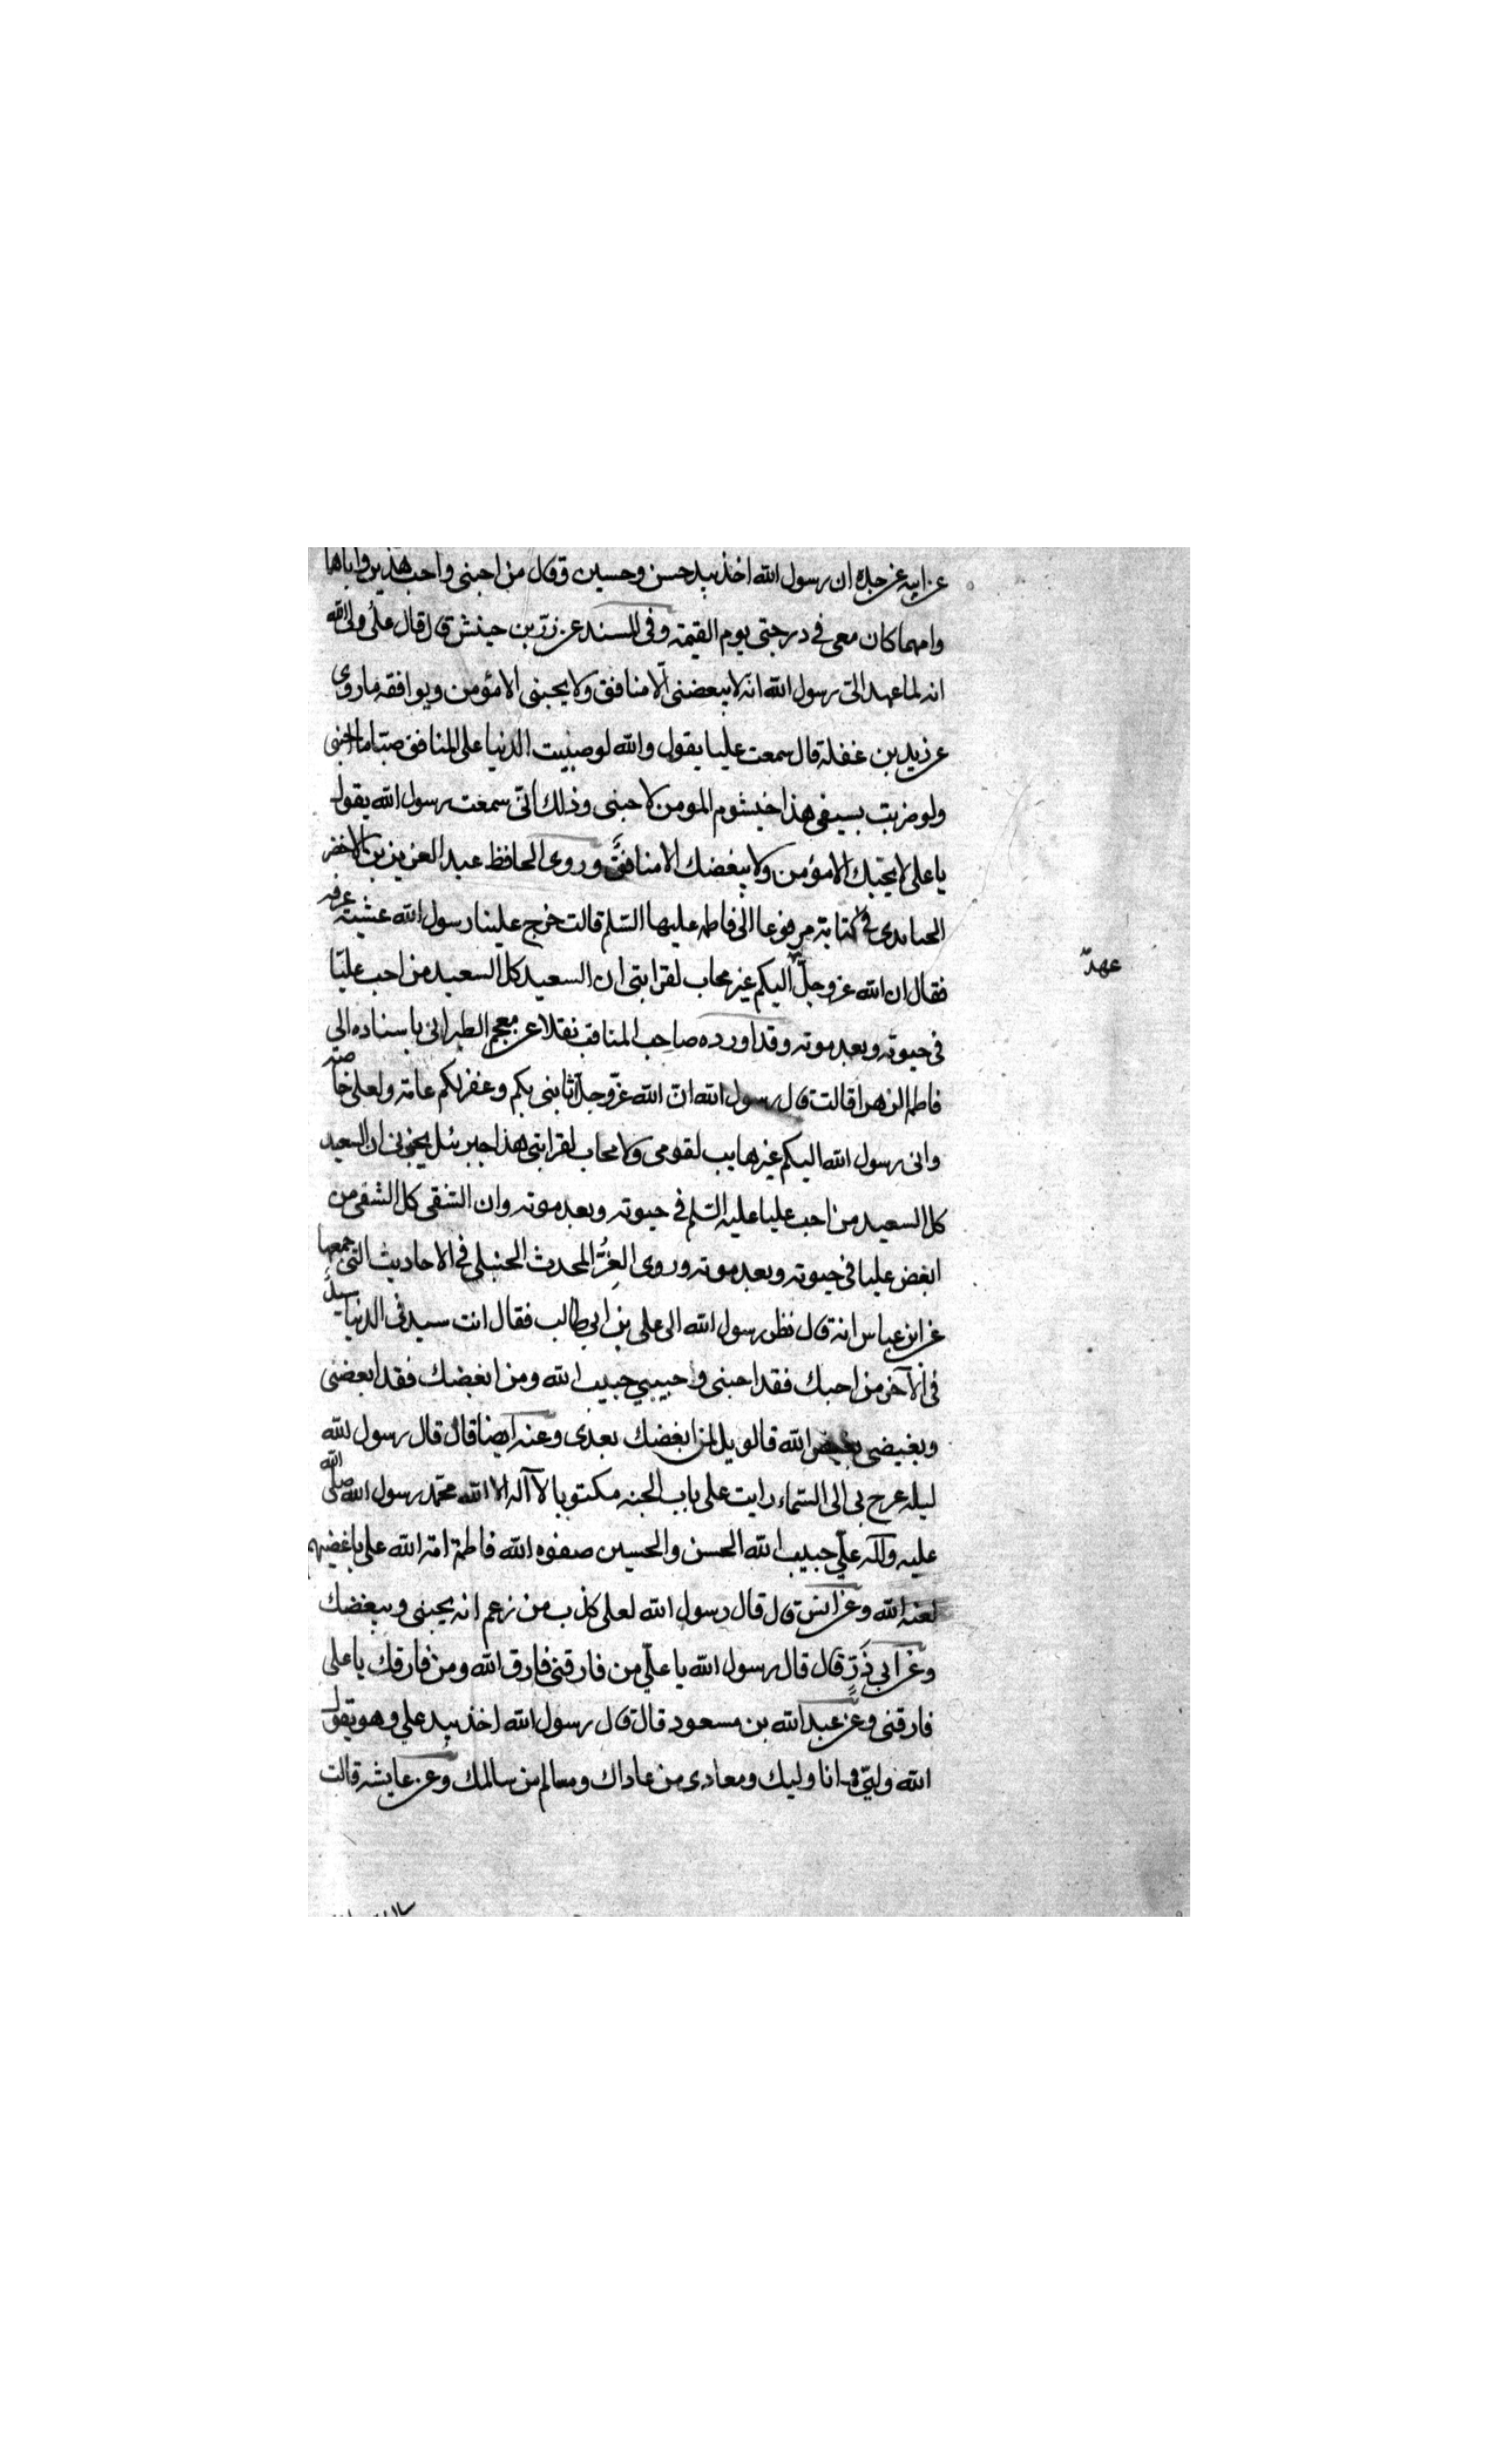 عن ابيه عن جده ان رسول الله اخذ بيد حسن وحسين وقال من احبني واحب هذين واباهما
وامهما كان معي في درجتي يوم القيمة وفي المسند عن زر بن حبيش قال قال علي والله
انه لما عهد الى رسول الله انه لا يبغضني الا منافق ولا يحبني الا مؤمن ويوافقه ما روى
عن زيد بن غفلة قال سمعت عليا يقول والله لو صببت الدنيا على المنافق صبا ما احبني
ولو ضربت بسيفي هذا خيشوم المومن لاحبني وذلك اني سمعت رسول الله يقول
يا علي لا يحبك الا مؤمن ولا يبغضك الا منافق وروى الحافظ عبد العزيز بن الاخضر
في كتابه مرفوعا الى فاطمه عليها السلم قالت خرج علينا رسول الله عشية عرفه
فقال ان الله عز وجل
عهد
اليكم غير محاب لقرابتي ان السعيد كل السعيد من احب عليا
في حيوته وبعد موته وقد اورده صاحب المناقب نقلا عن معجم الطبراني باسناده الى
فاطمة الزهرا قالت قال رسول الله ان الله عز وجل بكم وغفر لكم عامة ولعلي خاصة
واني رسول الله اليكم غير هايب لقومي ولا محاب لقرابتي هذا جبرئيل يخبرني ان السعيد
كل السعيد من احب عليا عليه السلم في حيوته وبعد موته وان الشقي كل الشقي من
ابغض عليا في حيوته وبعد موته وروى العز المحدث الحنبلي في الاحاديث التي جمعها
عن ابن عباس انه قال نظر رسول الله الى علي بن ابي طالب فقال انت سيد في الدنيا سيد
في الآخر من احبك فقد احبني وحبيبي حبيب الله ومن ابغضك فقد ابغضني
وبغيضي بغيض الله فالويل لمن ابغضك بعدي وعنه ايضا قال قال رسول الله
ليلة عرج بي الى السماء رايت على باب الجنه مكتوبا لا آله الا الله محمد رسول الله صلى الله
عليه وآله علي حبيب الله الحسن والحسين صفوه الله فاطمة امة الله على باغضيهم
لعنة الله وعن انس قال قال رسول الله لعلي كذب من زعم انه يحبني ويبغضك
وعن ابي ذر قال قال رسول الله يا علي من فارقني فارق الله ومن فارقك يا علي
فارقني وعن عبد الله بن مسعود قال قال رسول الله اخذ بيد علي وهو يقول
الله وليي وانا وليك ومعادي من عاداك ومسالم من سالمك وعن عايشه قالت